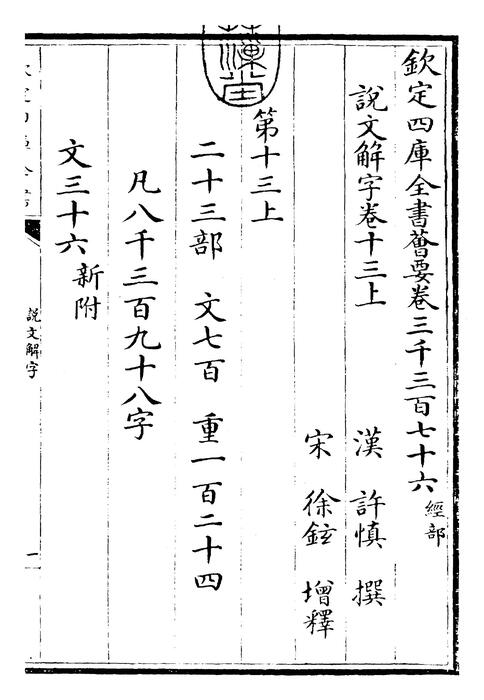 欽定四庫全書薈要卷三千三百七十六 經部
說文解字卷十三上
漢 許慎 撰
宋 徐鉉 增釋
第十三上
二十三部 文七百 重一百二十四
凡八千三百九十八字
文三十六新附
說文解字
一